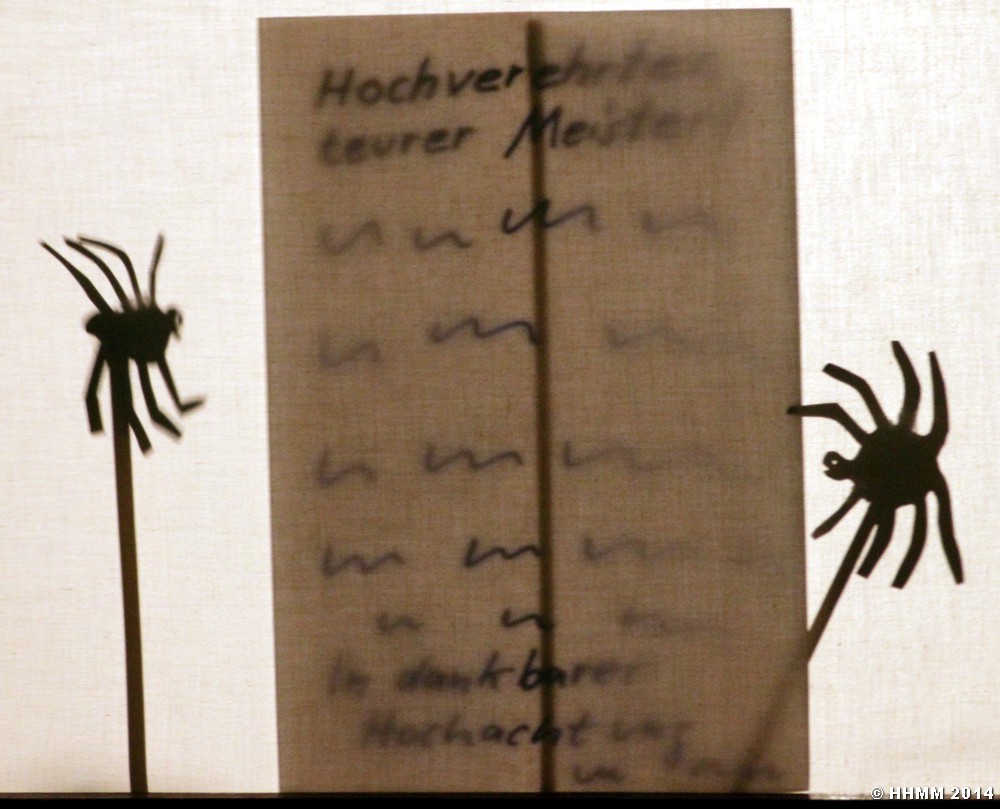 Hochverehrter
teurer Meister!
In dankbarer
Hochachtung
© HHMM 2014